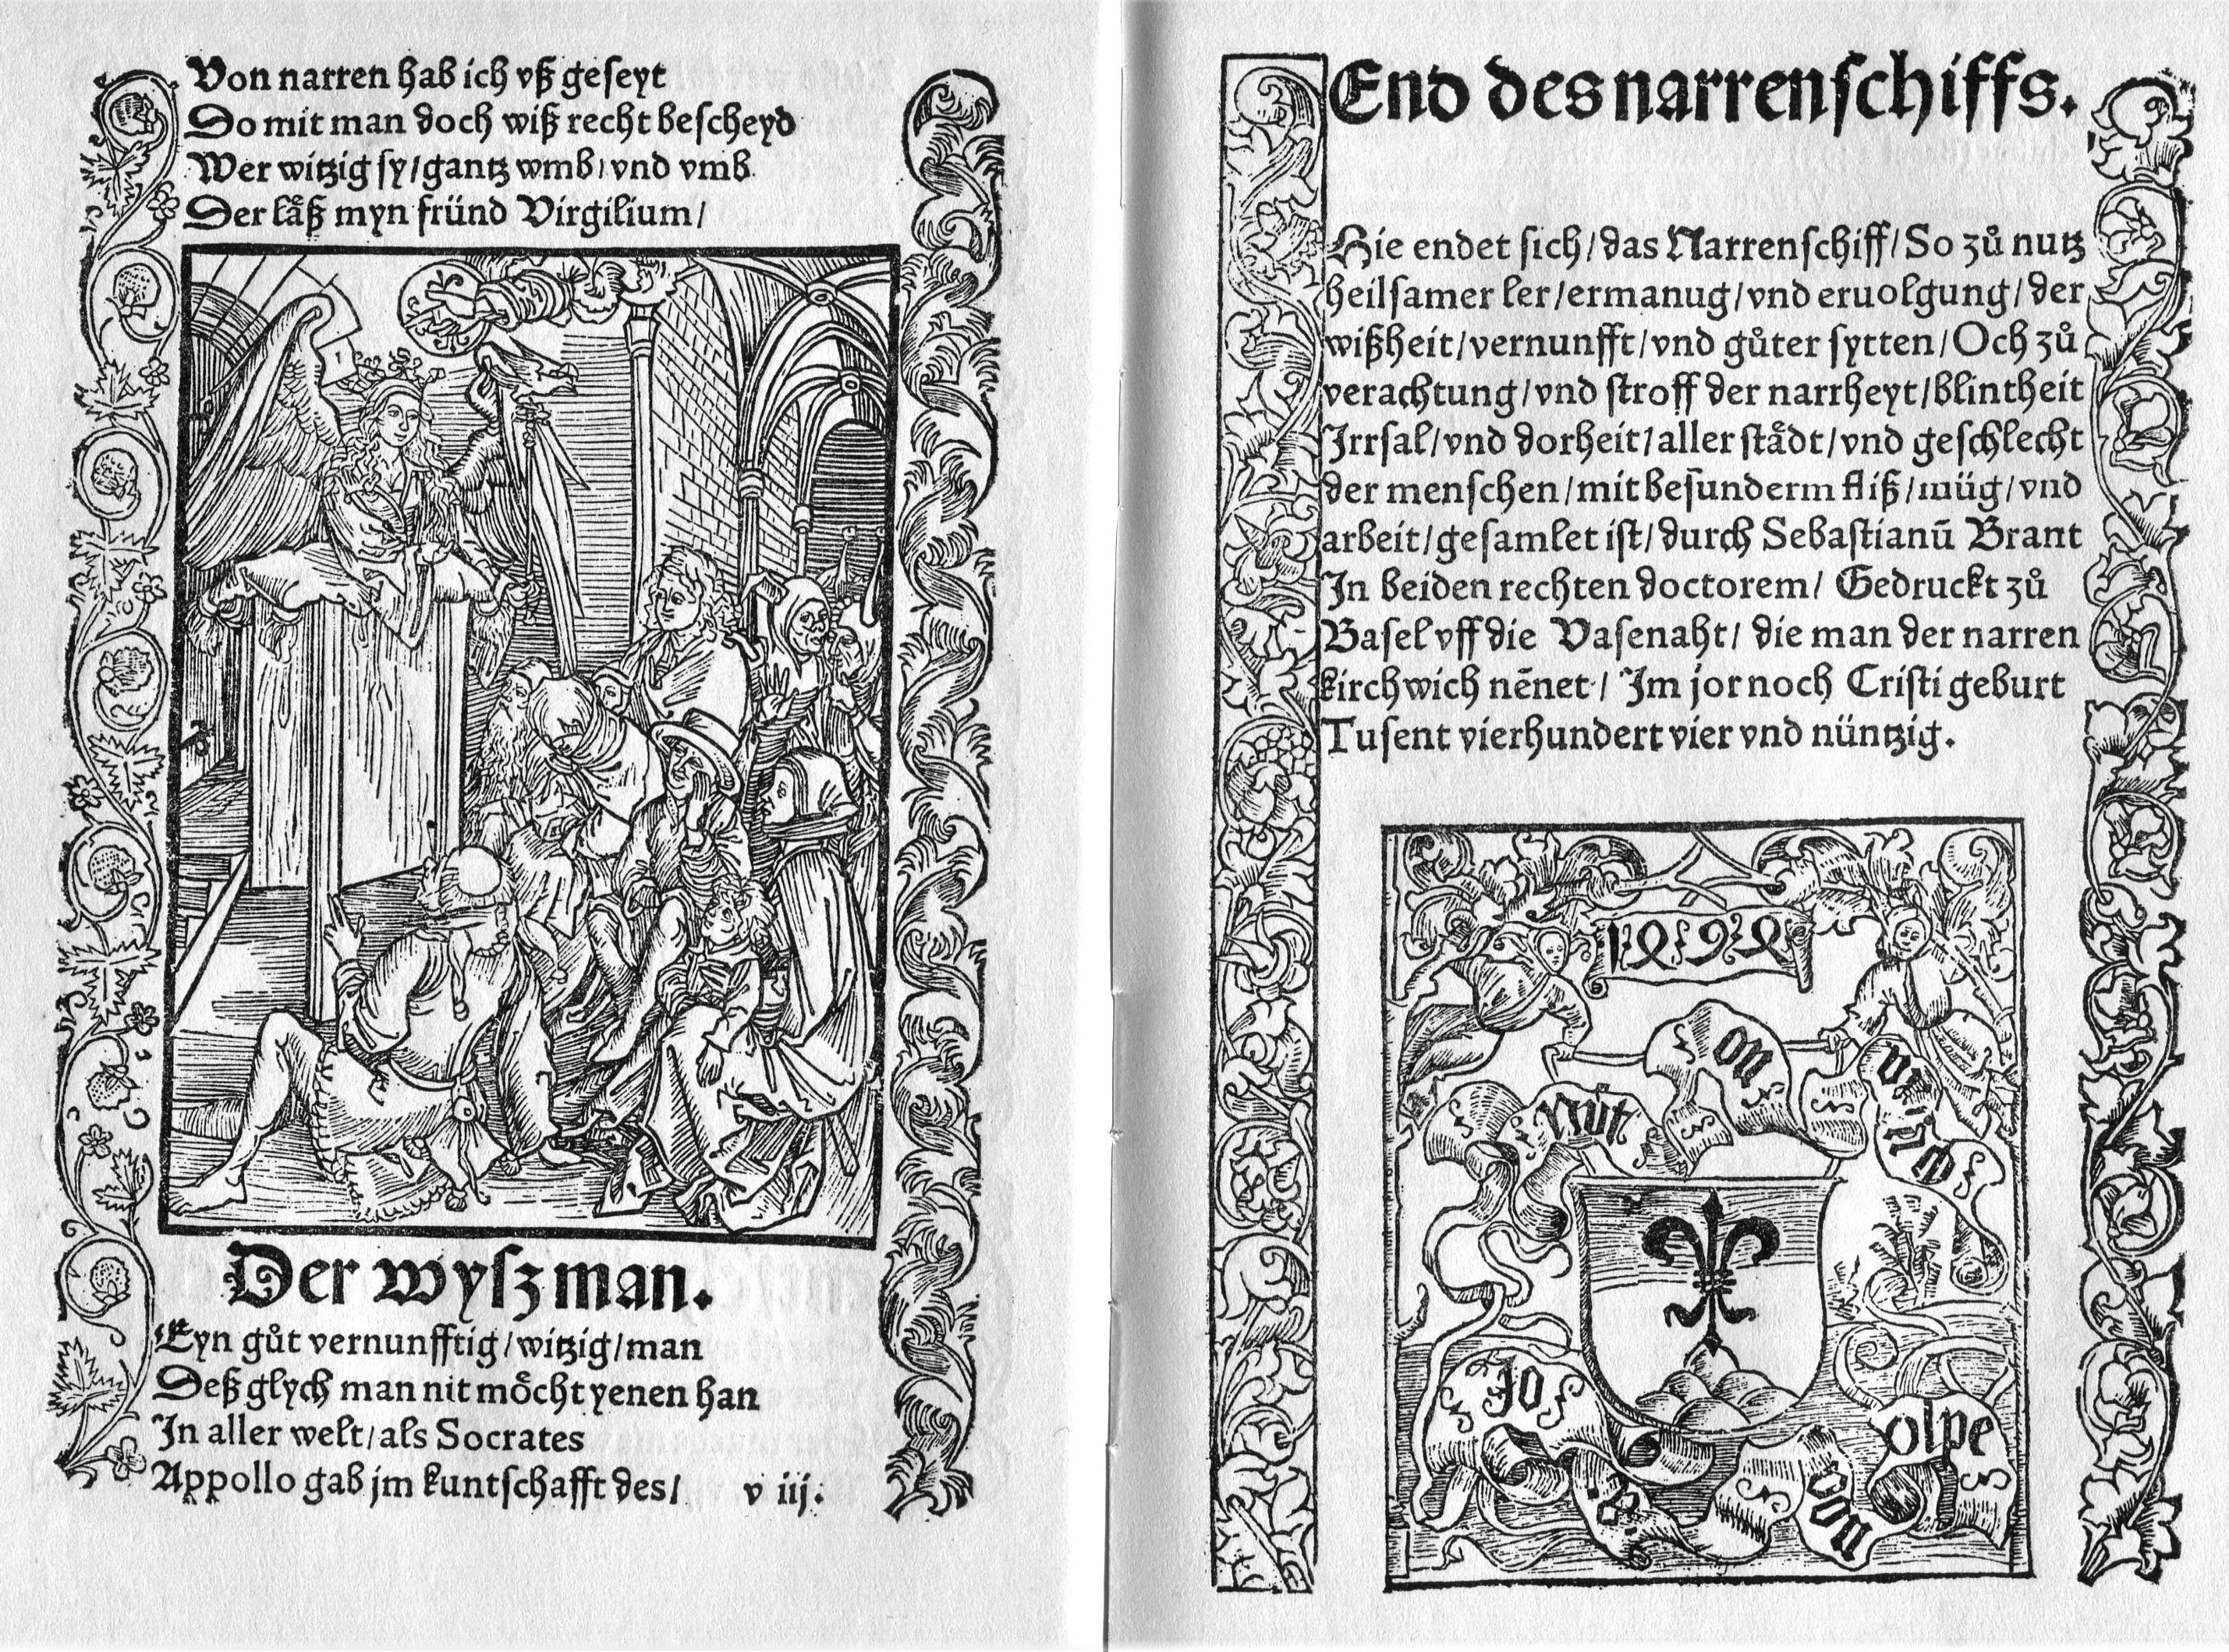 Von narren hab ich vß geseyt
Do mit man doch wiß recht bescheyd
Wer witzig sy/gantz vmb/vnd vmb
Der laͤß myn fründ Virgilium/
Der wyſz man.
Eyn guͦt vernunfftig/witzig/man
Deß glych man nit moͤcht yenen han
In aller welt/als Socrates
Appollo gab jm kuntschafft des/ v iij.
End des narrenſchiffs.
Hie endet sich/das Narrenschiff/So zuͦ nutz
heilsamer ler/ermanug/vnd eruolgung/der
wißheit/vernunfft/vnd guͦter sytten/Och zuͦ
verachtung/vnd stroff der narrheyt/blintheit
Irrsal/vnd dorheit/aller staͤdt/vnd geschlecht
der menschen/mit besunderm fliß/müg/vnd
arbeit/gesamlet ist/durch Sebastianū Brant
In beiden rechten doctorem/ Gedruckt zuͦ
Basel vff die Vasenaht/ die man der narren
kirchwich nēnet/ Im jor noch Cristi geburt
Tusent vierhundert vier vnd nüntzig.
1494
Nüt on vrsach
Jo B von olpe